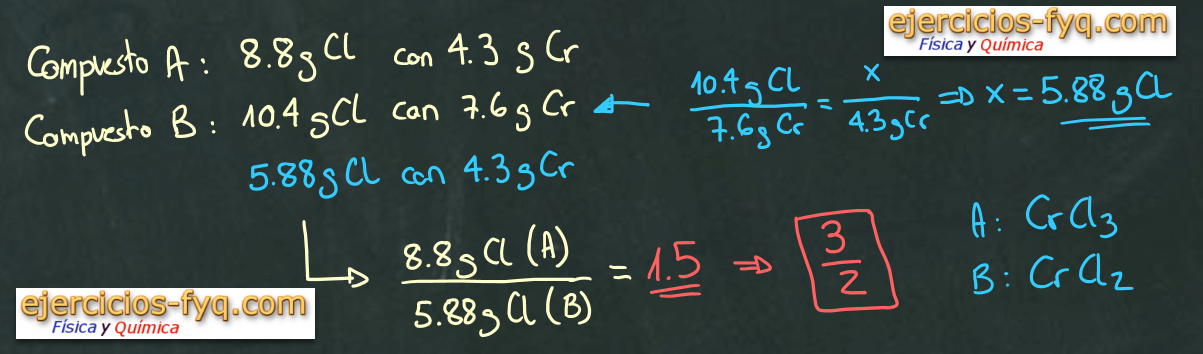 ejercicios-fyq.com
Física y Química
Compuesto A: 8.8g Cl con 4.3 g Cr
Compuesto B: 10.4 g Cl con 7.6 g Cr ← 10.4 g Cl / 7.6 g Cr = x / 4.3 g Cr ⇒ x = 5.88 g Cl
5.88 g Cl con 4.3 g Cr
8.8 g Cl (A) / 5.88 g Cl (B) = 1.5 ⇒ 3/2
A: CrCl₃
B: CrCl₂
ejercicios-fyq.com
Física y Química